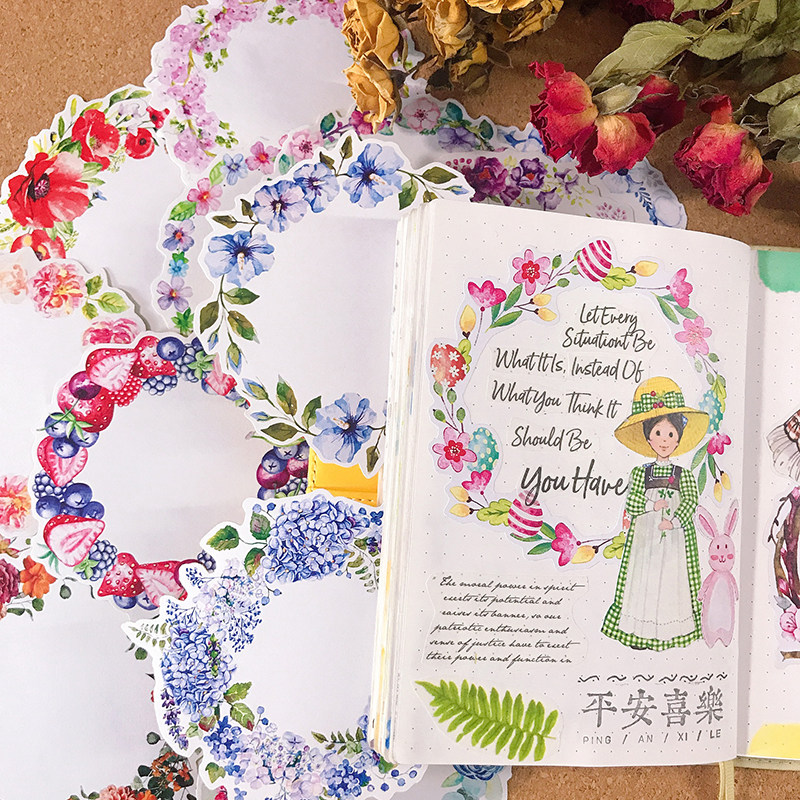 Let Every
Situationt Be
What It Is, Instead Of
What You Think It
Should Be
You Have
"The moral power in spirit
exerts its potential and
raises its banner, so our
patriotic enthusiasm and
sense of justice have to exert
their power and function in
平安喜樂
PING / AN / XI / LE